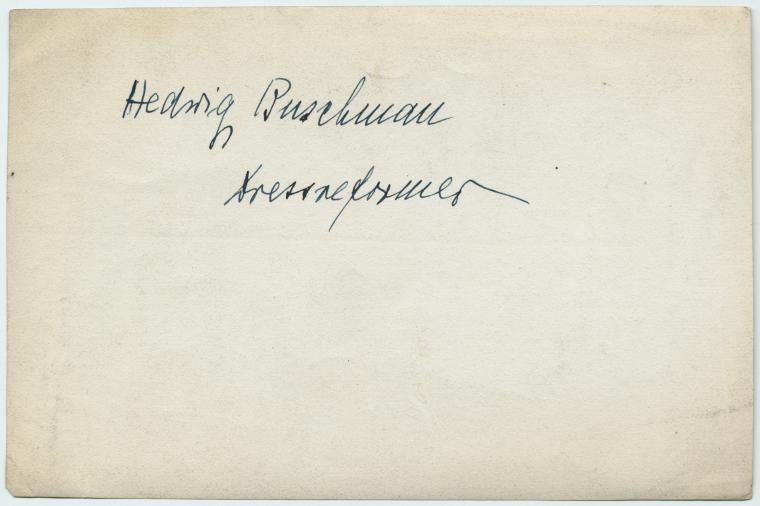 Hedwig Buschman
Dressreformer